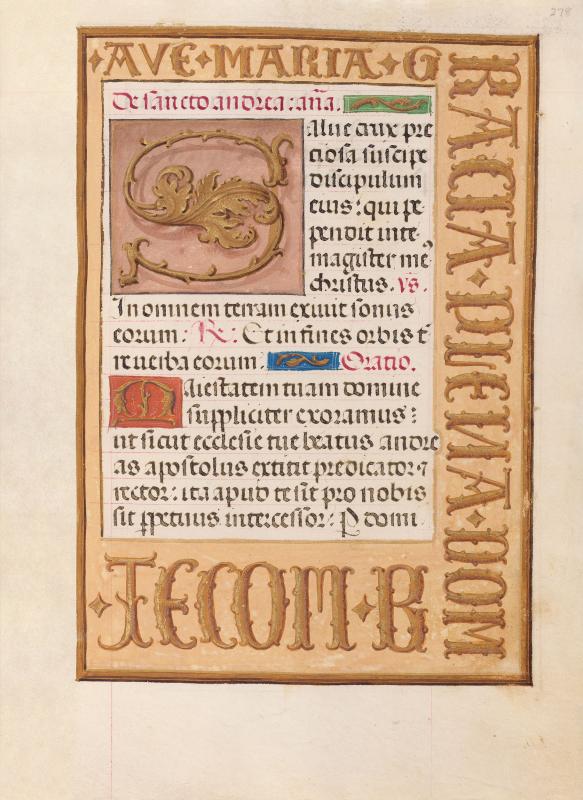 278
·AVE·MARIA·G
RACIA·PLENA·DOM
De sancto andrea: an̄a.
Salue crux pre
ciosa suscipe
discipulum
eius: qui pe
pendit in te
magister me᾽
christus. vs.
In omnem terram exiuit sonus
eorum: R: Et in fines orbis t̄
re verba eorum. Oratio.
Maiestatem tuam domine
suppliciter exoramus:
ut sicut ecclesie tue beatus andre
as apostolus extitit predicator ⁊
rector: ita apud te sit pro nobis
sit ꝑpetuus intercessor: P domi
·TECOM·B